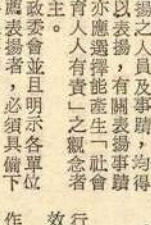 揚之人員及事蹟，均得
以表揚，有關表揚事蹟
亦應選擇能產生「社會
育人人有責」之觀念者
主。
政委會並且明示各單位
應表揚者，必須具備下
行
效
作